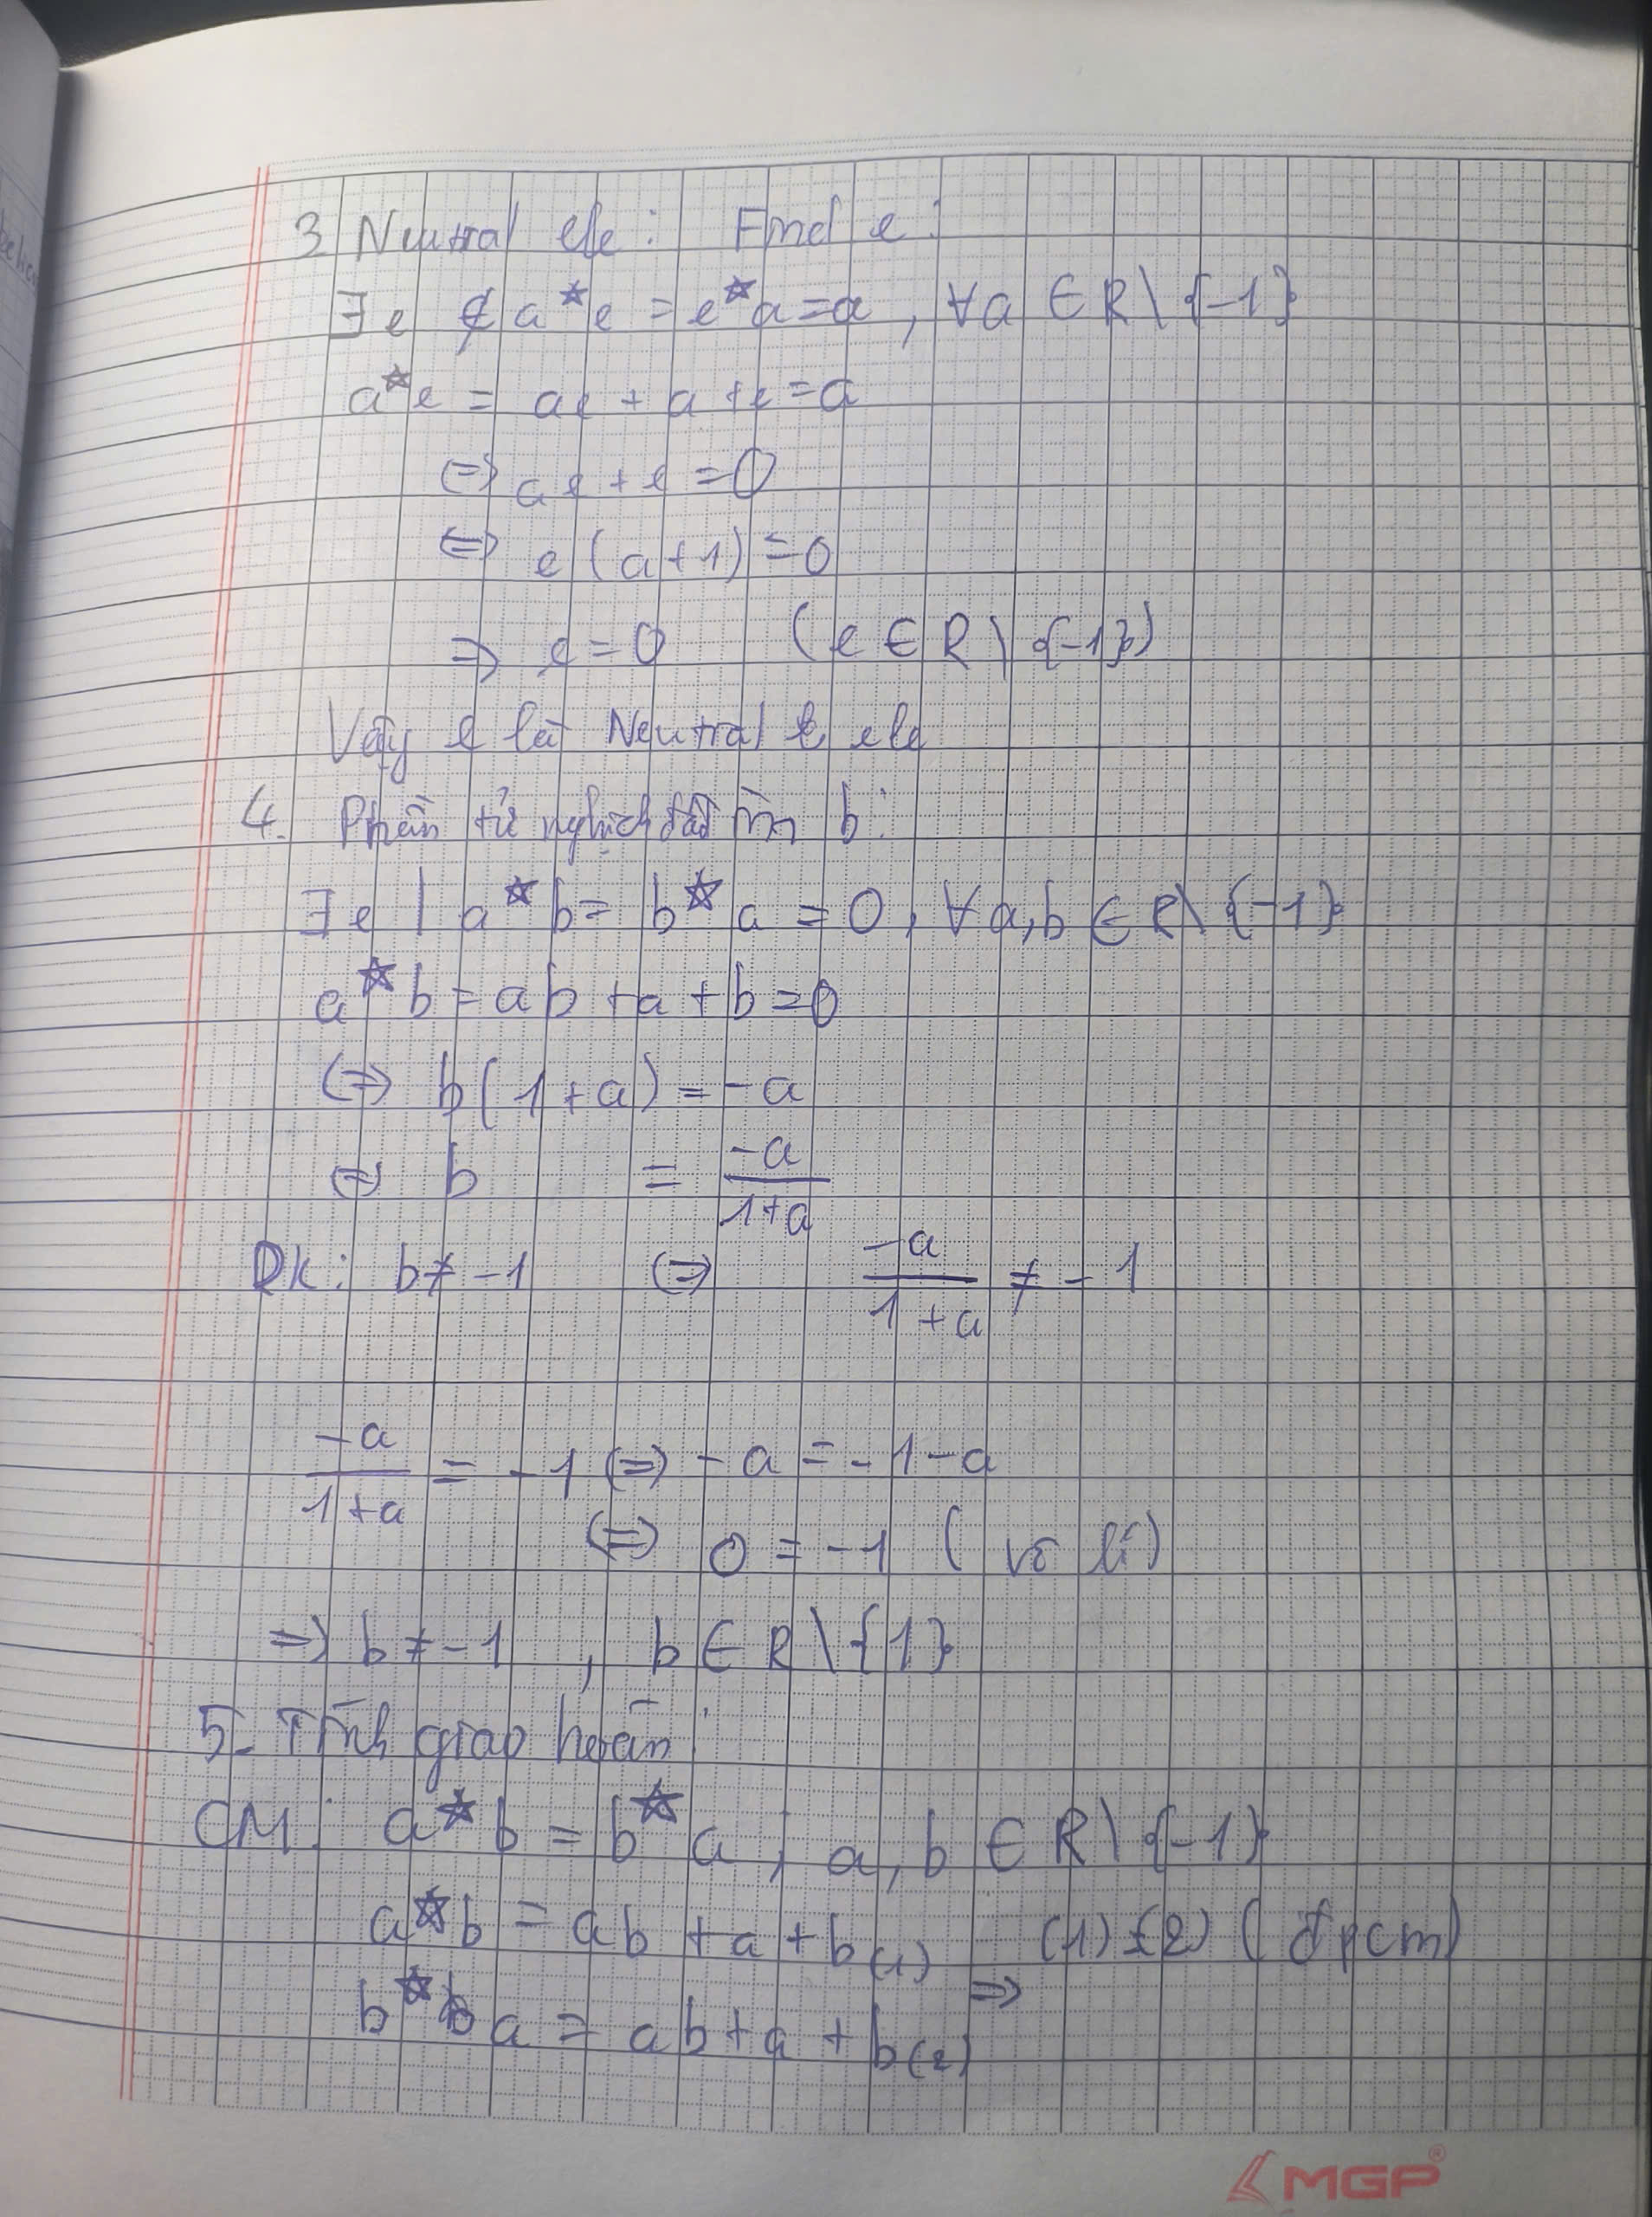 3 Neutral ele: Find e:
∃ e a * e = e * a = a, ∀a ∈ R \ {-1}
a * e = ae + a + e = a
⇔ ae + e = 0
⇔ e(a+1) = 0
⇒ e = 0 (e ∈ R \ {-1})
Vậy e là Neutral ele
4. Phần tử nghịch đảo tìm b:
∃ e | a * b = b * a = 0, ∀ a, b ∈ R \ {-1}
a * b = ab + a + b = 0
⇔ b(1+a) = -a
⇔ b = -a/(1+a)
ĐK: b ≠ -1 ⇔ -a/(1+a) ≠ -1
-a/(1+a) = -1 ⇔ -a = -1-a
⇔ 0 = -1 (vô lí)
⇒ b ≠ -1, b ∈ R \ {1}
5. Tính giao hoán:
CM: a * b = b * a; a, b ∈ R \ {-1}
a * b = ab + a + b (1) ⇒ (1) = (2) (đpcm)
b * a = ab + a + b (2)
MGP®